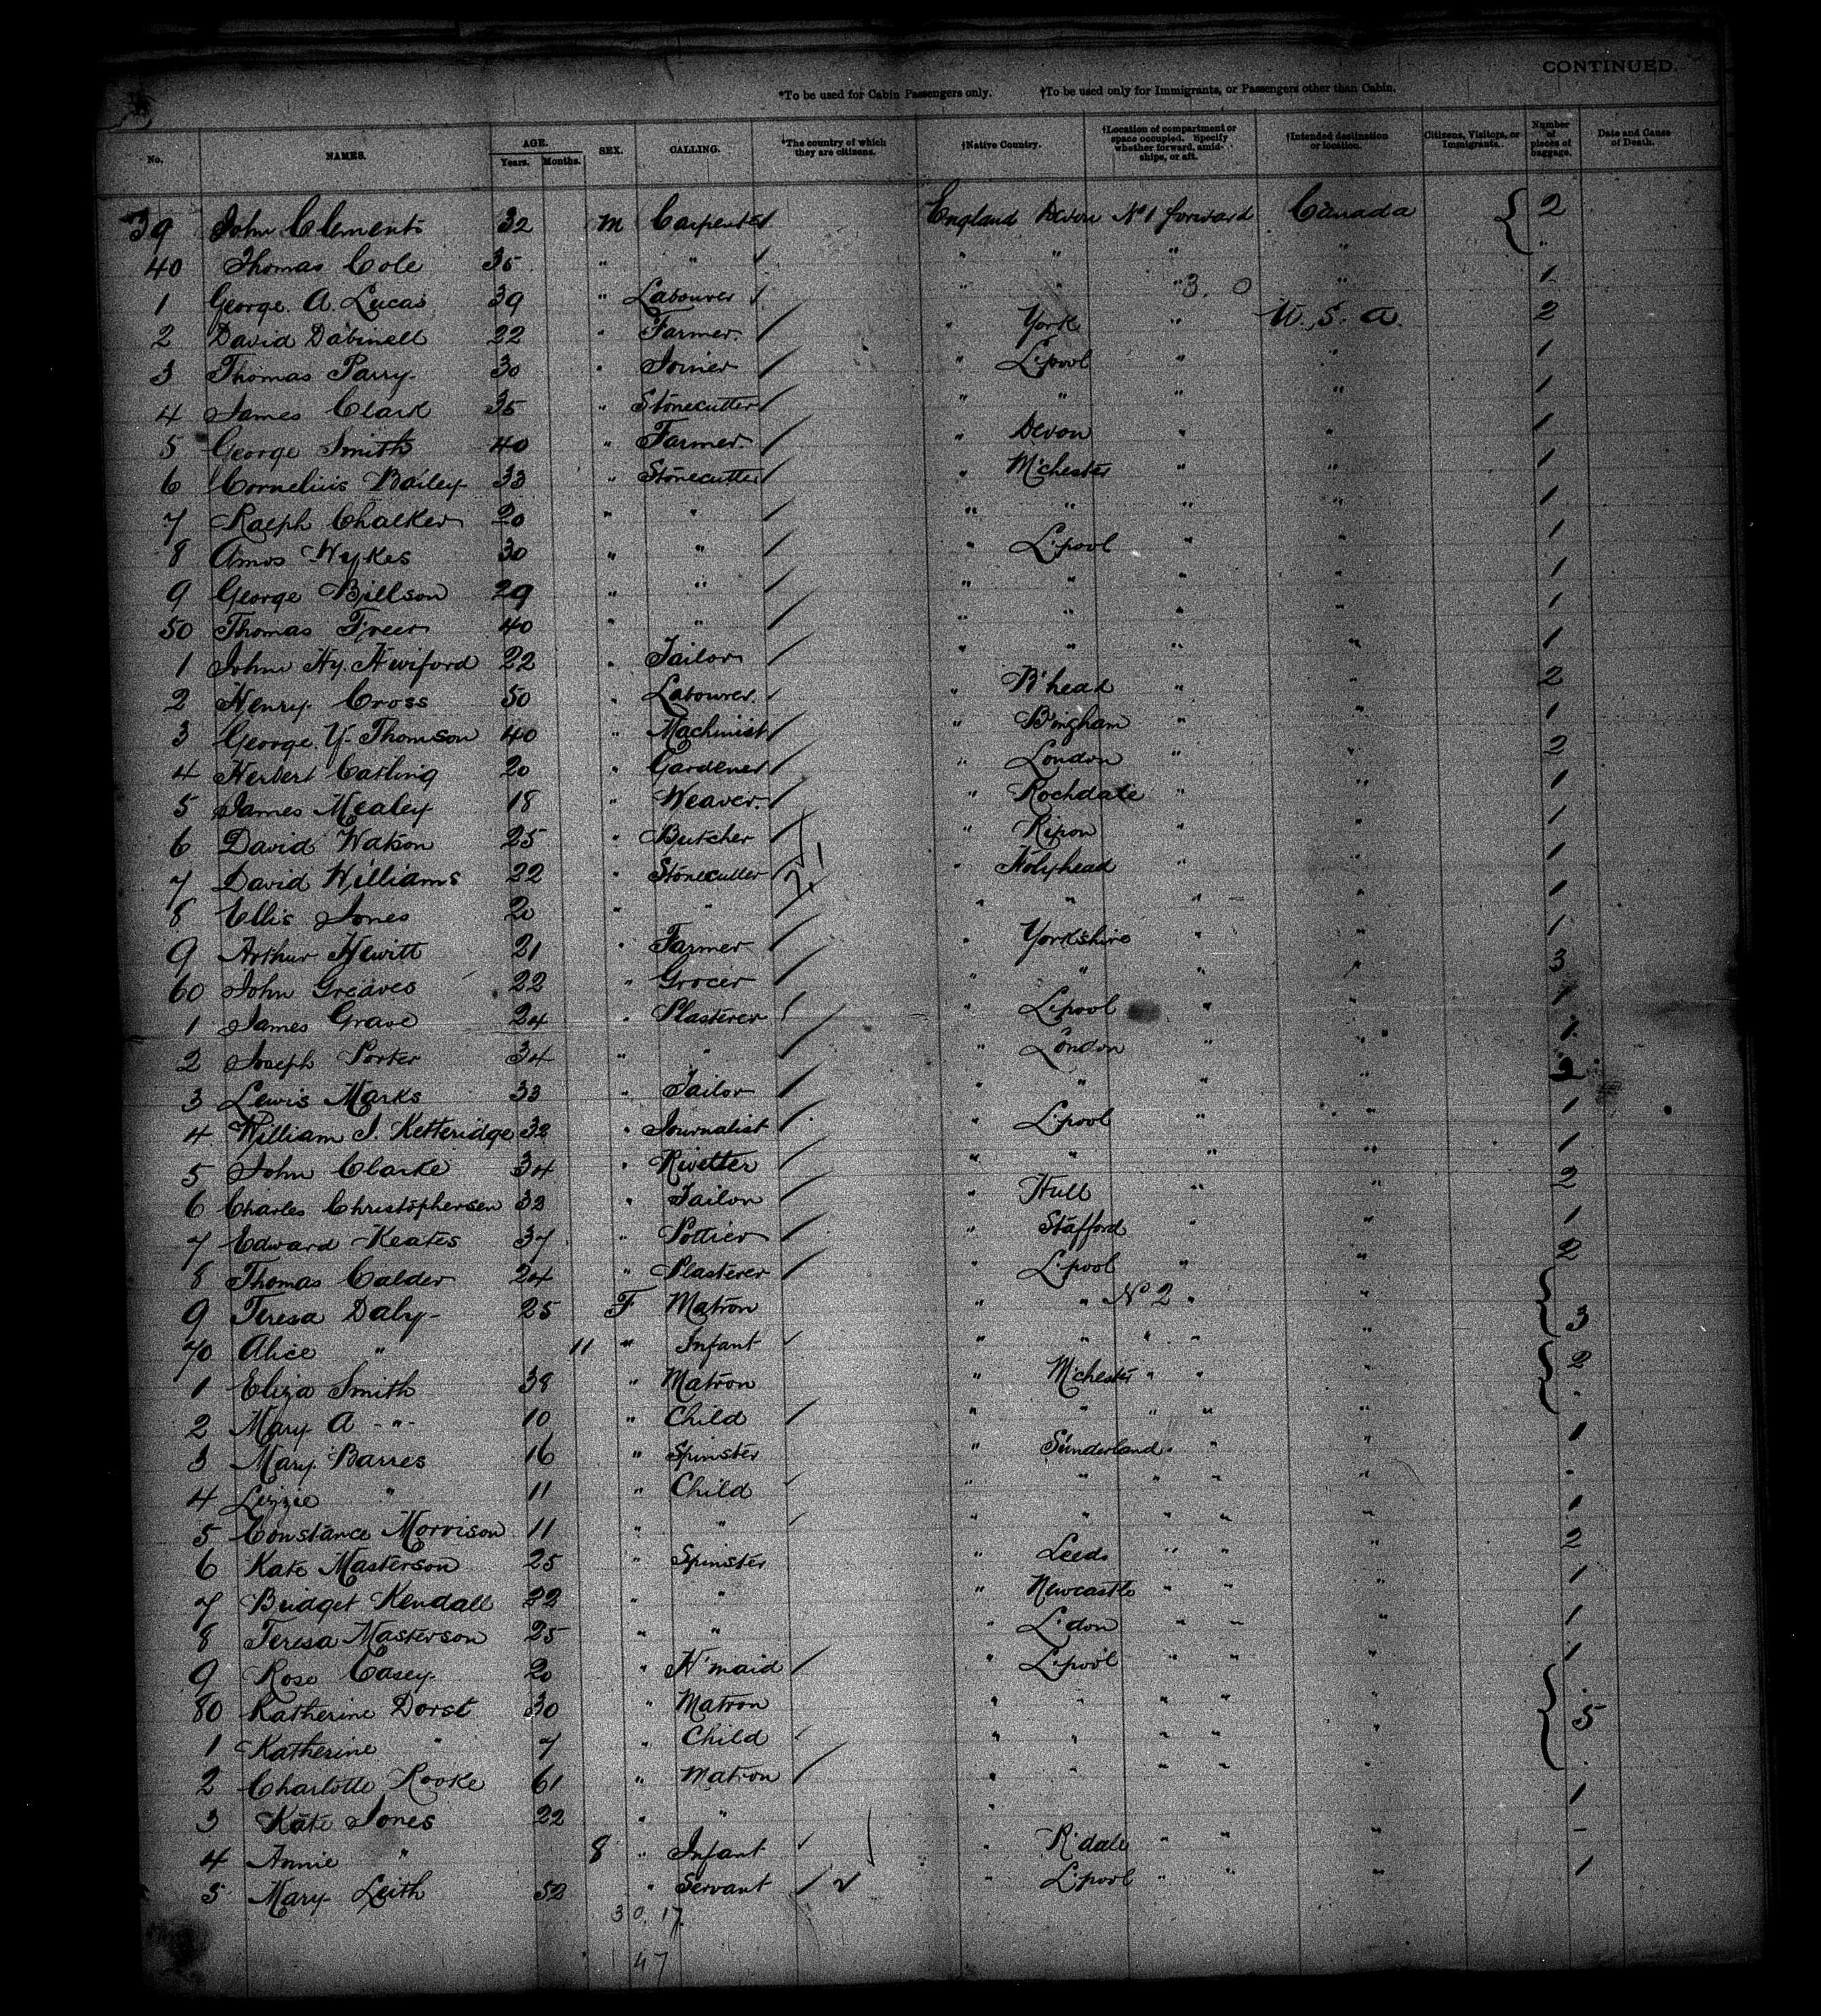 CONTINUED.
*To be used for Cabin Passengers only. †To be used only for Immigrants, or Passengers other than Cabin.
No. NAMES. AGE. Years. Months. SEX. CALLING. †The country of which they are citizens. †Native Country. †Location of compartment or space occupied. Specify whether forward, amidships, or aft. †Intended destination or location. Citizens, Visitors, or Immigrants. Number of pieces of baggage. Date and Cause of Death.
39 John Clements 32 M Carpenter England Devon No 1 forward Canada 2
40 Thomas Cole 35 " " " " " " "
1 George. A. Lucas 39 " Labourer " " " " 1
3. 0
2 David Dabinell 22 " Farmer. " York " U. S. A. 2
3 Thomas Parry 30 " Joiner " L'pool " " 1
4 James Clark 35 " Stonecutter " " " " 1
5 George Smith 40 " Farmer " Devon " " 1
6 Cornelius Bailey 33 " Stonecutter " M'chester " " 1
7 Ralph Chalker 20 " " " " " " 1
8 Amos Wykes 30 " " " L'pool " " 1
9 George Billson 29 " " " " " " 1
50 Thomas Freer 40 " " " " " " 1
1 John Hy. 22 " Tailor " " " " 1
2 Henry Cross 50 " Labourer. " B'head " " 2
3 George. Y. Thomson 40 " Machinist " B'ingham " " 1
4 Herbert Catling 20 " Gardener " London " " 2
5 James Mealey 18 " Weaver. " Rochdale " " 1
6 David Watson 25 " Butcher " Ripon " " 1
7 David Williams 22 " Stonecutter " Holyhead " " 1
8 Ellis Jones 20 " " " " " " 1
9 Arthur Hewitt 21 " Farmer " Yorkshire " " 1
60 John Greaves 22 " Grocer " " " " 3
1 James Grave 24 " Plasterer " L'pool " " 1
2 Joseph Porter 34 " " " London " " 1
3 Lewis Marks 33 " Tailor " " " " 2
4 William J. Ketteridge 32 " Journalist " L'pool " " 1
5 John Clarke 34 " Rivetter " " " " 1
6 Charles Christophersen 33 " Tailor " Hull " " 2
7 Edward Keates 37 " Pottier " Stafford " " 1
8 Thomas Calder 24 " Plasterer " L'pool " " 2
9 Teresa Daly 25 F Matron " " No 2 " " 3
70 Alice " 11 " Infant " " " " "
1 Eliza Smith 38 " Matron " M'chester " " " 2
2 Mary A " 10 " Child " " " " " "
3 Mary Barres 16 " Spinster " Sunderland " " 1
4 Lizzie " 11 " Child " " " " " "
5 Constance Morrison 11 " " " " " " " 1
6 Kate Masterson 25 " Spinster " Leeds " " " 2
7 Bridget Kendall 22 " " " Newcastle " " " 1
8 Teresa Masterson 25 " " " L'don " " " 1
9 Rose Casey 20 " H'maid " L'pool " " " 1
80 Katherine Dorst 30 " Matron " " " " " 5
1 Katherine " 7 " Child " " " " "
2 Charlotte Rooke 61 " Matron " " " " "
3 Kate Jones 22 " " " 1
4 Annie " 8 " Infant " R'dale " " " -
5 Mary Leith 52 " Servant " L'pool " " " 1
30. 17.
47